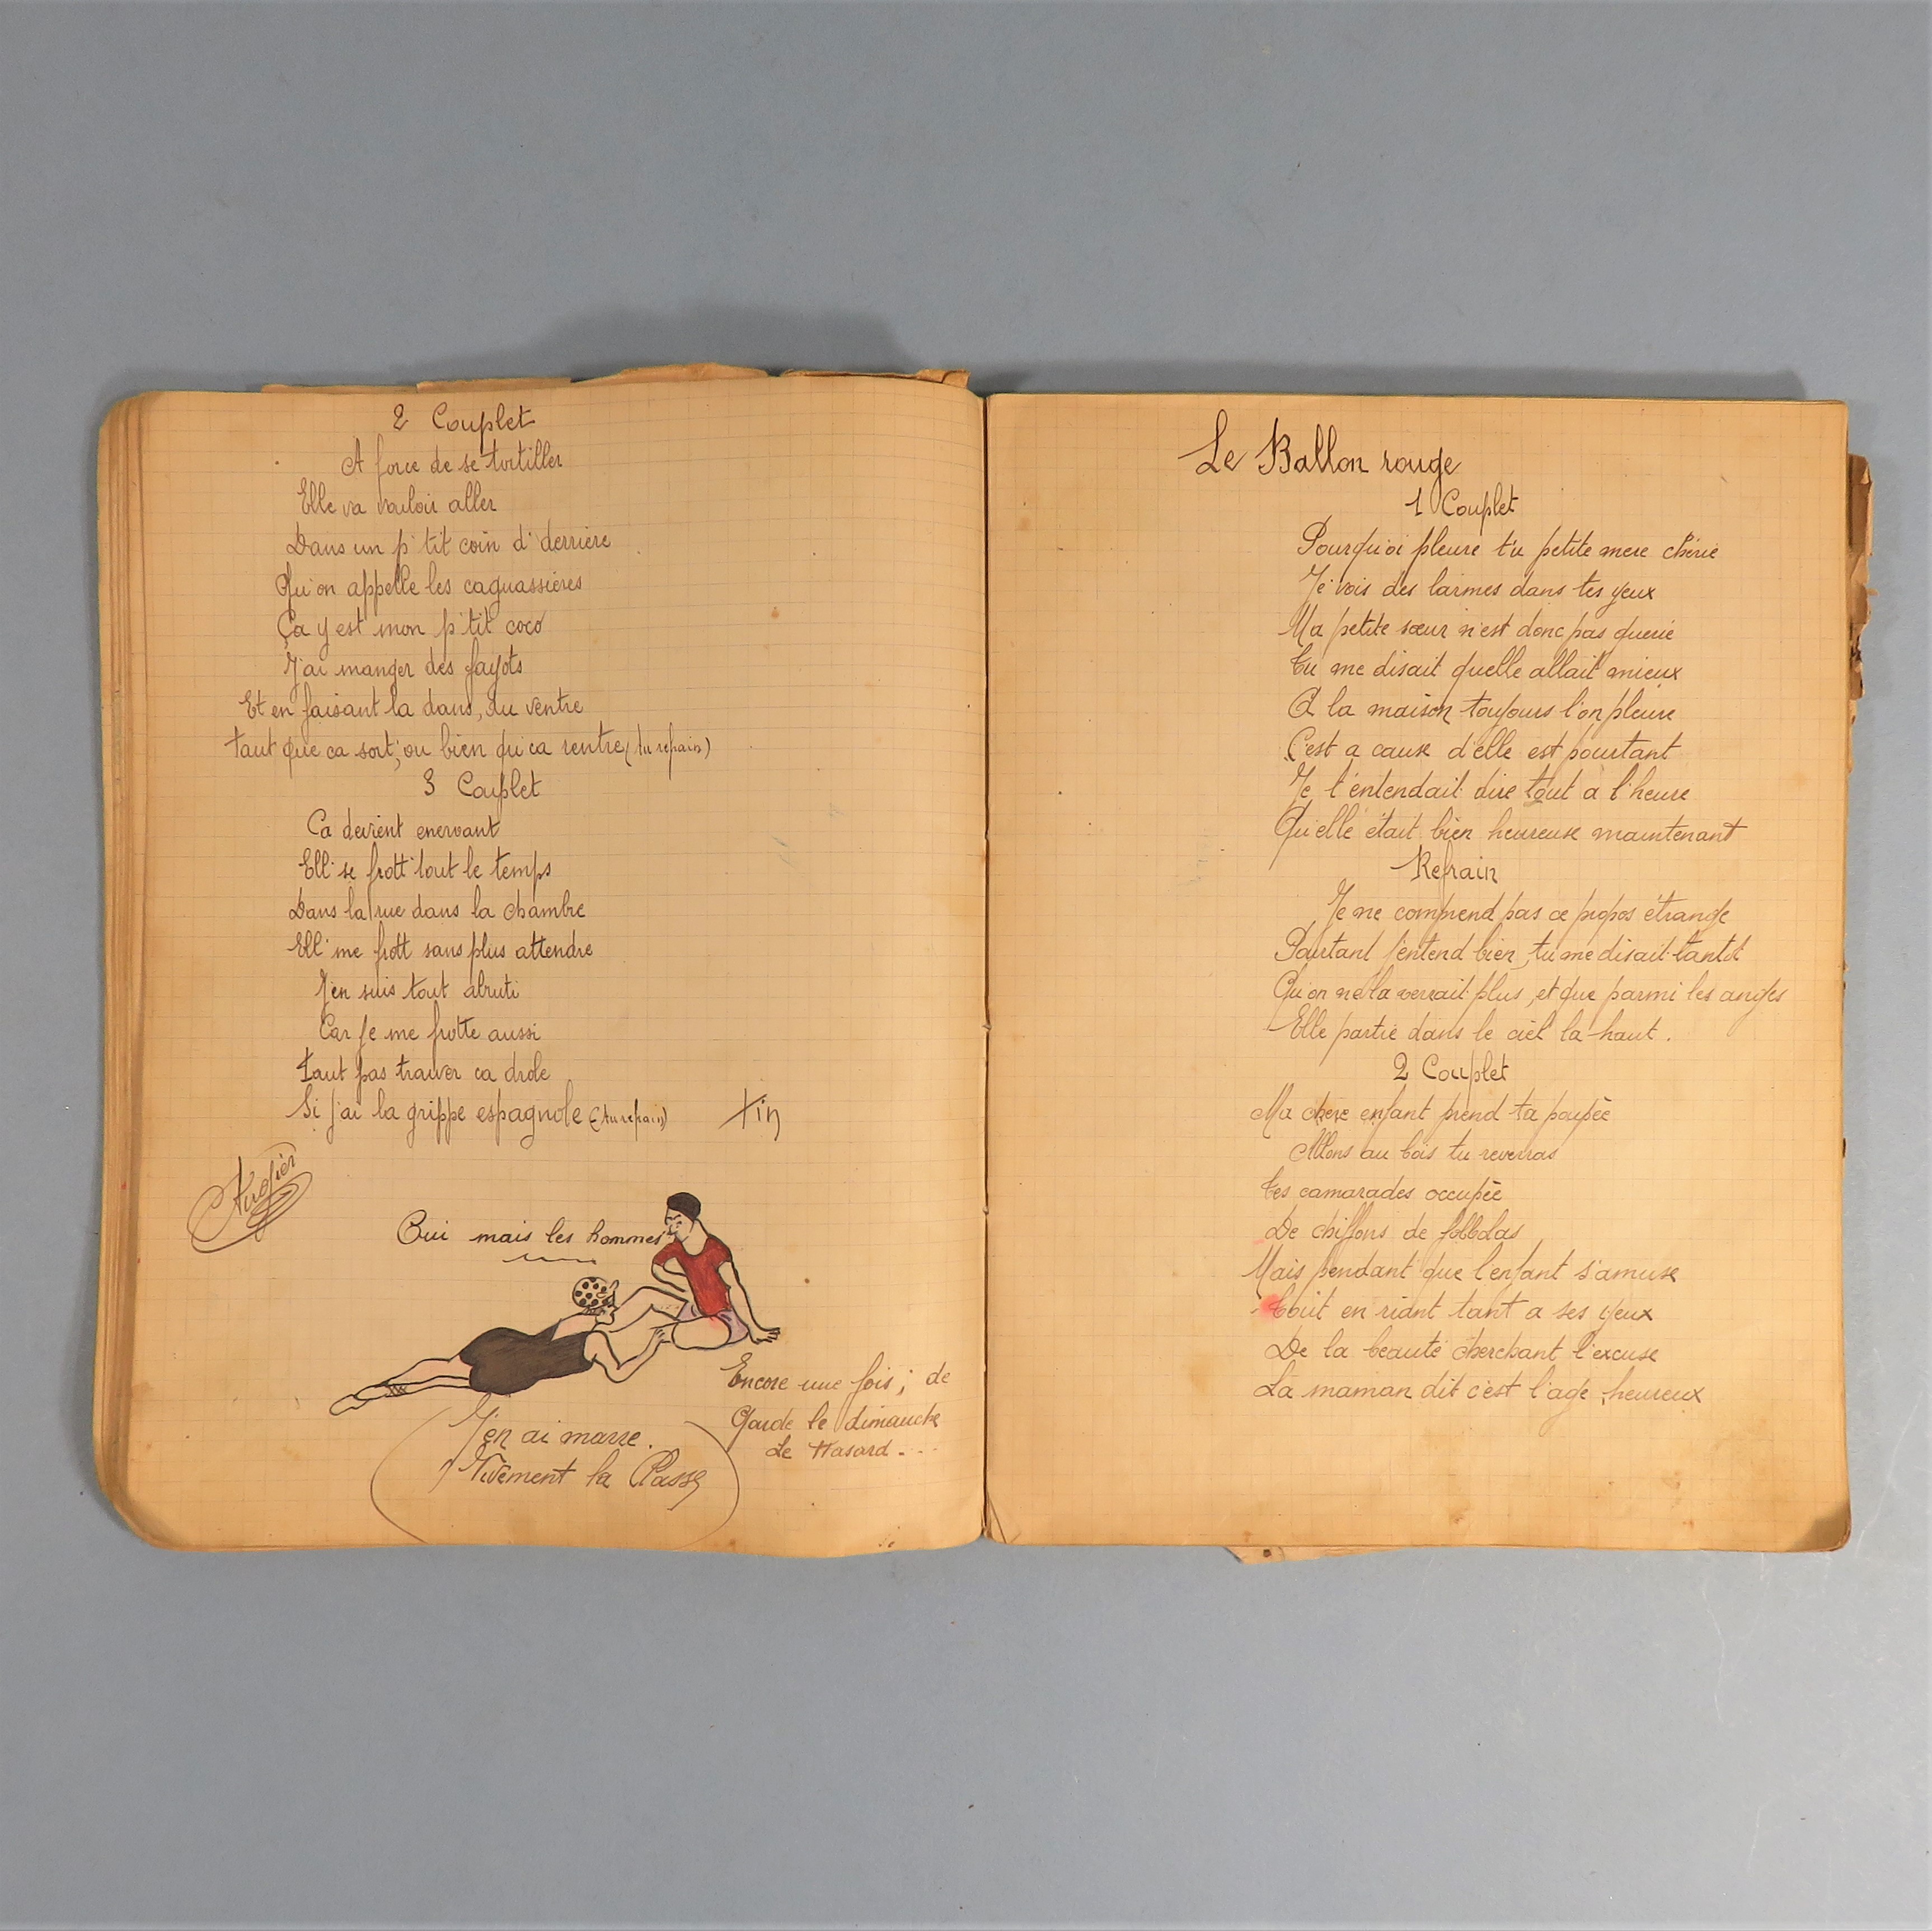 2 Couplet
A force de se tortiller
Elle va vouloir aller
Dans un p'tit coin d'derrière
Qu'on appelle les caguassières
Ça y est mon p'tit coco
J'ai manger des fayots
Et en faisant la dans, du ventre
Faut que ca sort, ou bien qu'ca rentre (Au refrain)
3 Couplet
Ca devient enervant
Ell' se frott' tout le temps
Dans la rue dans la chambre
Ell' me frott sans plus attendre
J'en suis tout abruti
Car je me frotte aussi
Faut pas trouver ca drole
Si j'ai la grippe espagnole (Au refrain)
Fin
Oui mais les hommes
Encore une fois ; de
Garde le dimanche
Le Hasard - ...
J'en ai marre.
Vivement la Classe
Le Ballon rouge
1 Couplet
Pourquoi pleure t'u petite mere chérie
Je vois des larmes dans tes yeux
Ma petite sœur n'est donc pas guerie
Tu me disait quelle allait mieux
A la maison toujours l'on pleure
C'est a cause d'elle est pourtant
Je t'entendait dire tout a l'heure
Qu'elle était bien heureuse maintenant
Refrain
Je ne comprend pas ce propos étrange
Pourtant j'entend bien, tu me disait tantôt
Qu'on ne la verrait plus, et que parmi les anges
Elle partie dans le ciel la-haut.
2 Couplet
Ma chere enfant prend ta poupée
Allons au bois tu reverras
Tes camarades occupée
De chiffons de falbalas
Mais pendant que l'enfant s'amuse
Tout en riant tant a ses yeux
De la beauté cherchant l'excuse
La maman dit c'est l'age heureux